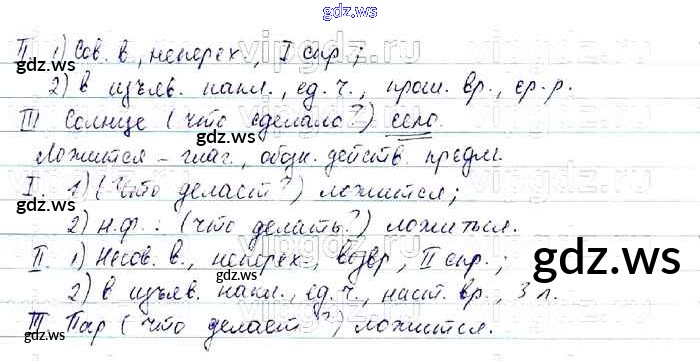 gdz.ws
II 1) Сов. в., неперех., I спр.;
2) в изъяв. накл., ед. ч., прош. вр., ср. р.
III Солнце (что сделало?) село.
Ложится – глаг., обозн. действ. предм.
I. 1) (Что делает?) ложится;
2) н. ф.: (что делать?) ложиться.
II. 1) Несов. в., неперех., возвр., II спр.;
2) в изъяв. накл., ед. ч., наст. вр., 3 л.
III Пар (что делает?) ложится.
gdz.ws